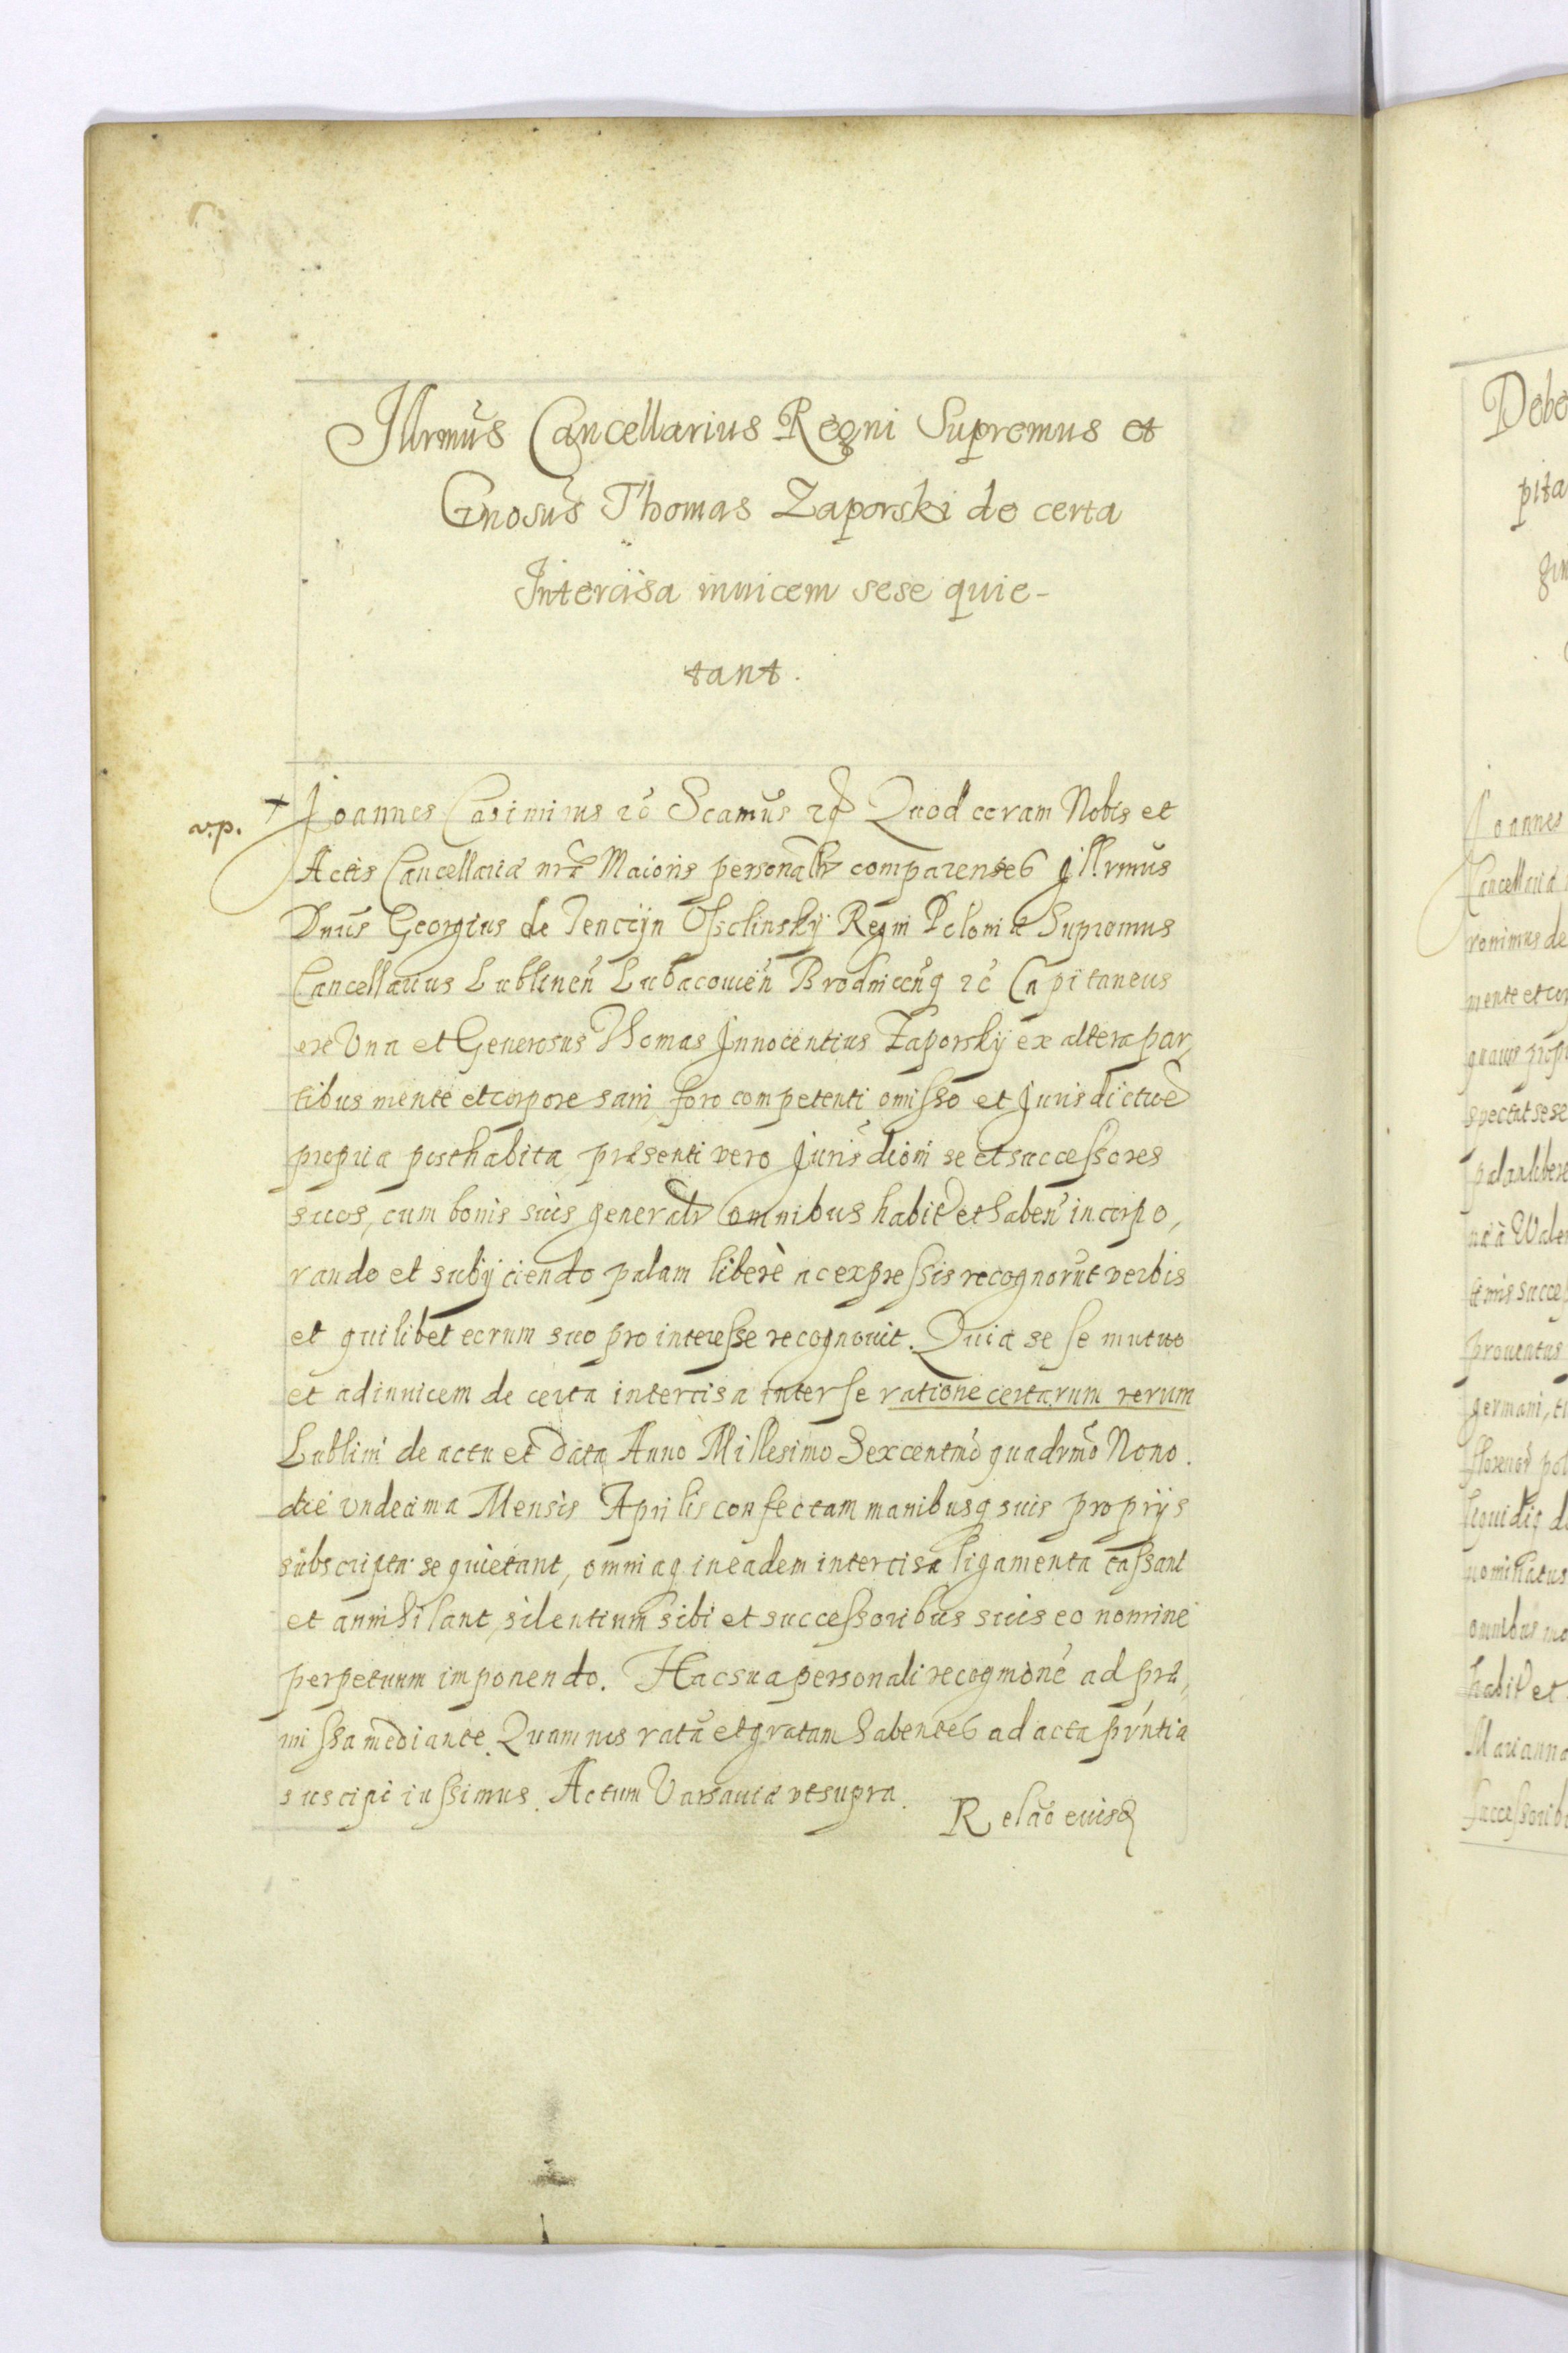 Illrmus Cancellarius Regni Supremus et
Gnosus Thomas Zaporski de certa
Intercisa inuicem sese quie-
tant.
v.p. + Joannes Casimirus &c Scamus &c Quod coram Nobis et
Actis Cancellariæ nræ Maioris personalr comparentes Jllrmus
Dnus Georgius de Tenczyn Ossolinsky Regni Poloniæ Supremus
Cancellarius Lublinen Lubacouien Brodnicenq &c Capitaneus
ex Vna et Generosus Thomas Jnnocentius Zaporsky ex altera par,
tibus mente et corpore sani, foro competenti omisso et Jurisdictioe
propria posthabita, præsenti vero Jurisdioni se et successores
suos, cum bonis suis generalr omnibus habit et haben incorpo,
rando et subijciendo palam liberè ac expressis recognorut verbis
et quilibet eorum suo pro interesse recognouit. Quia se se mutuo
et adinuicem de certa intercisa inter se ratione certarum rerum
Lublini de actu et data Anno Millesimo Sexcentmo quadrmo Nono.
die vndecima Mensis Aprilis confectam manibusq suis proprijs
subscripta se quietant, omniaq in eadem intercisa ligamenta cassant
et annihilant, silentium sibi et successoribus suis eo nomine
perpetuum imponendo. Hac sua personali recognione ad præ,
missa mediante. Quam nos ratu et gratam habentes ad acta pñtia
suscipi iussimus. Actum Varsauiæ vt supra.
Relao eiusd
Debe
pita
Joannes
Cancellariæ
ronimus de
mente et cor
spectat sese
palam libere
næ à
suis succes
prouentus
germani, ti
nominatus
omnibus
habit et
Marianna
successorib